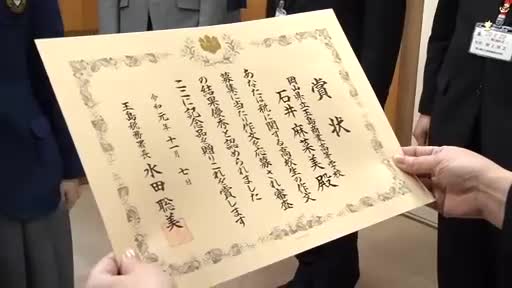 賞状
岡山県立玉島商業高等学校
石井麻菜美殿
あなたは税に関する高校生の作文
募集に当たり作文を応募され審査
の結果優秀と認められました
ここに記念品を贈りこれを賞します
令和元年十一月七日
玉島税務署長 水田聡美